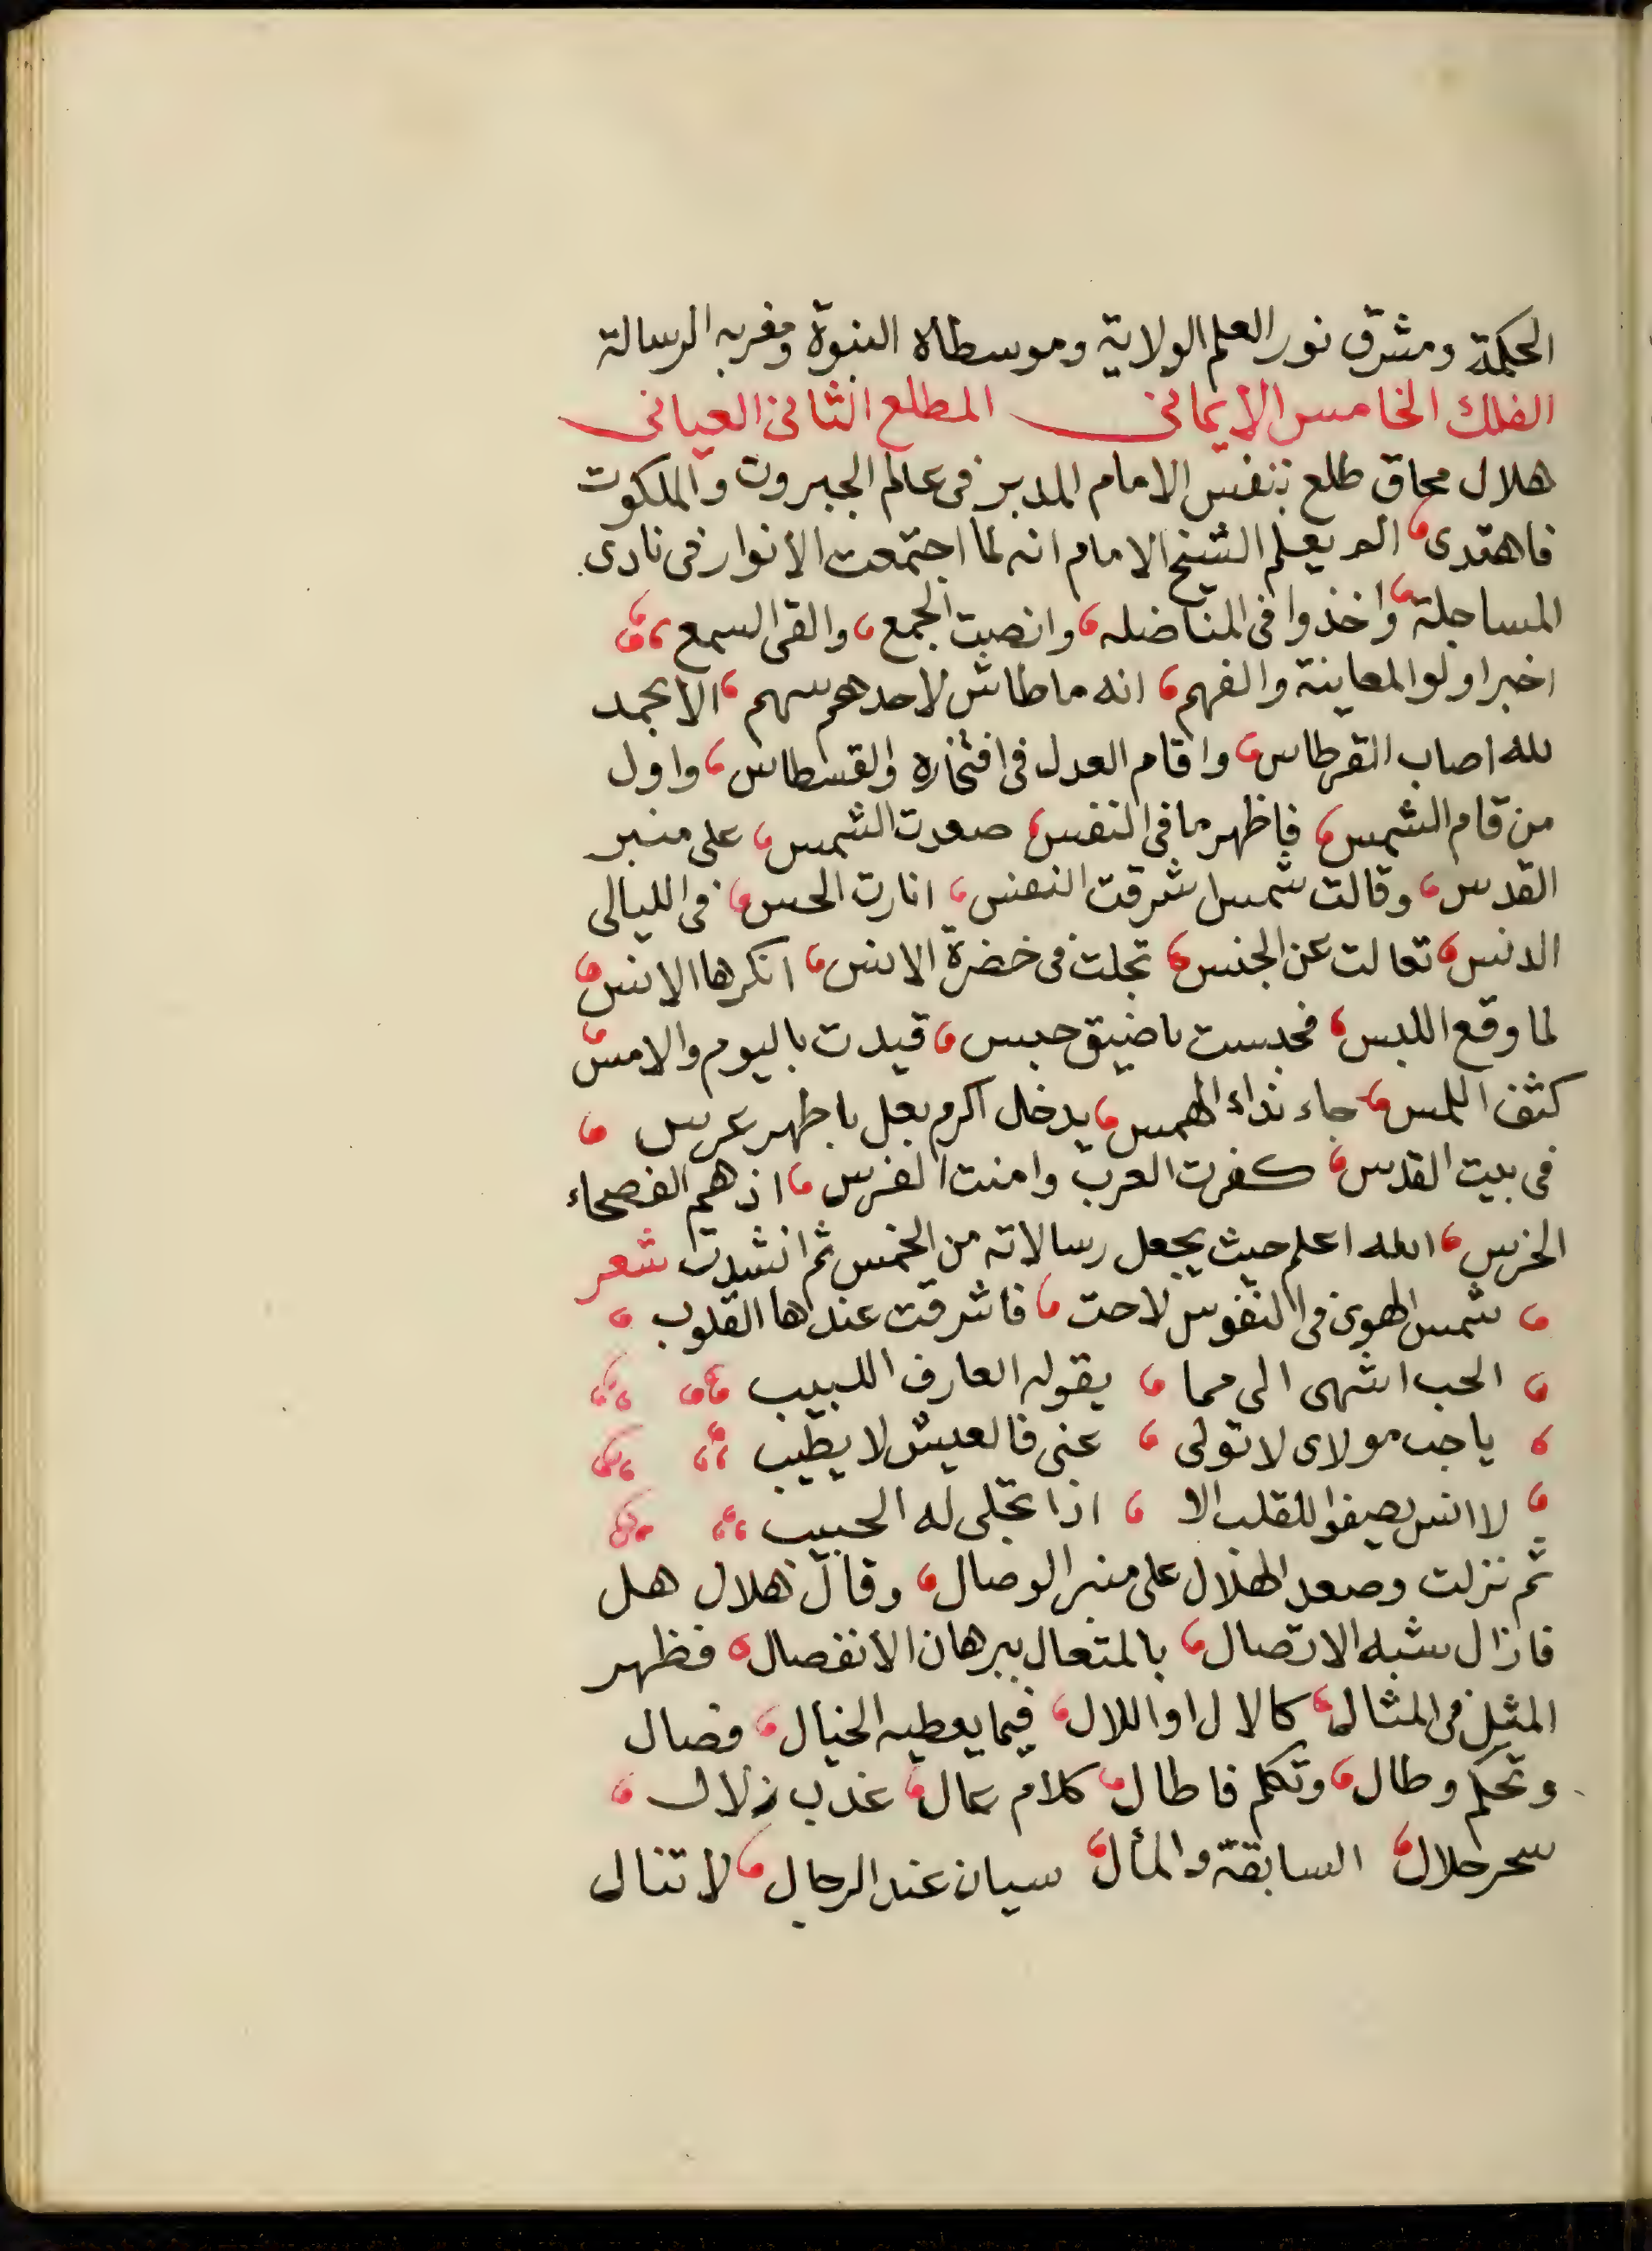 الحكمة ومشرق نور العلم الولاية وموسطاه النبوة ومغربه الرسالة
الفلك الخامس الايماني المطلع الثاني العياني
هلال محاق طلع بنفس الامام المدبر في عالم الجبروت والملكوت
فاهتدى، الم يعلم الشيخ الامام انه لما اجتمعت الانوار في نادى
المساجلة، واخذوا في المناضله، وانصت الجمع، والقى السمع،،
اخبر اولوا المعاينة والفهم، انه ما طاش لاحدهم سهم، الا بحمد
لله اصاب القرطاس، واقام العدل في افتخاره والقسطاس، واول
من قام الشمس، فاظهر ما في النفس، صعدت الشمس، على منبر
القدس، وقالت شمس شرقت النفس، انارت الحس، في الليالى
الدنس، تعالت عن الجنس، تجلت في خضرة الانس، انكرها الانس،
لما وقع اللبس، فحبست باضيق حبس، قيدت باليوم والامس
كثف اللمس، جاء نداء الهمس، يدخل اكرم بعل باطهر عرس،
في بيت القدس، كفرت العرب وامنت الفرس، اذ هم الفصحاء
الخرس، الله اعلم حيث يجعل رسالاته من الخمس ثم انشدت شعر
، شمس الهوى في النفوس لاحت، فاشرقت عندها القلوب،
، الحب اشهى الى مما، يقوله العارف اللبيب،،
، يا حب مولاى لا تولى، عنى فالعيش لا يطيب،،
، لا انس يصفوا للقلب الا، اذا تجلى له الحبيب،،
ثم نزلت وصعد الهلال على منبر الوصال، وقال هلال هل
فازال شبه الاتصال، بالمتعال ببرهان الانفصال، فظهر
المثل في المثال، كالال او اللال، فيما يعطيه الخيال، فصال
وتحكم وطال، وتكلم فاطال، كلام عال، عذب زلال،
سحر حلال، السابقة والمأل، سيان عند الرجال، لا تنال